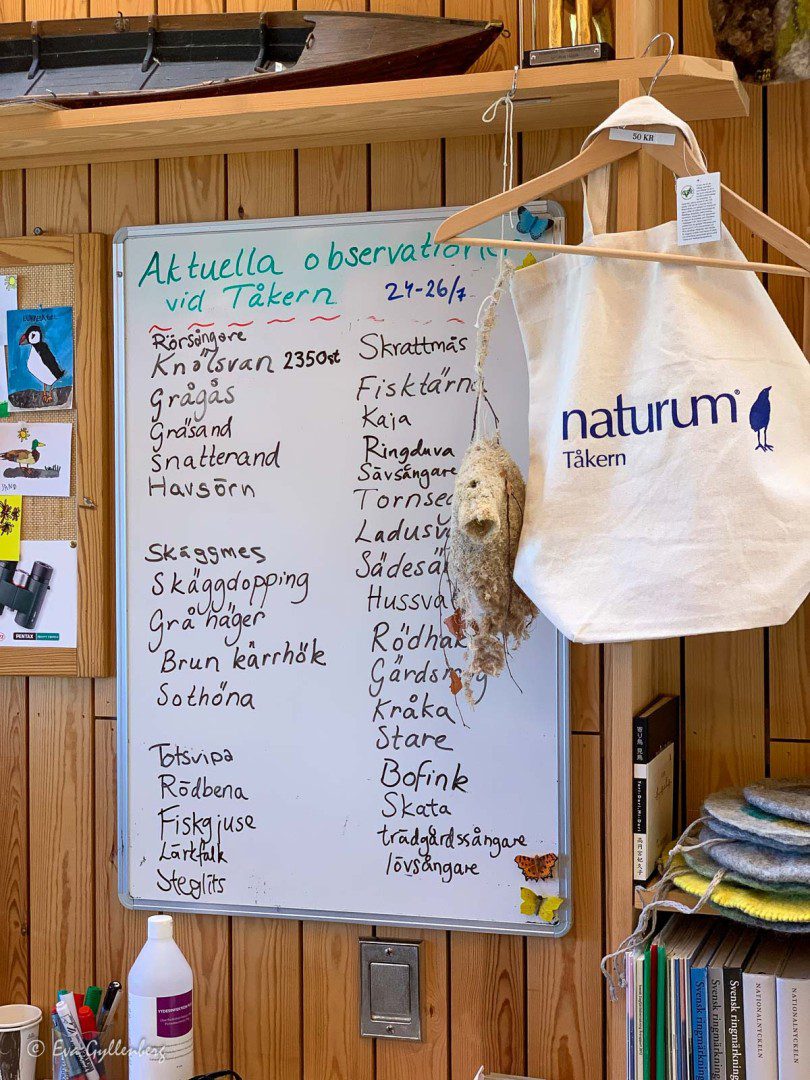 Aktuella observatione
vid Tåkern 24-26/7
Rörsångare
Knölsvan 2350st
Grågås
Gräsand
Snatterand
Havsörn
Skäggmes
Skäggdopping
Grå häger
Brun kärrhök
Sothöna
Totsvipa
Rödbena
Fiskgjuse
Lärtfalk
Steglits
Skrattmås
Fisktärna
Kaja
Ringduva
Sävsångare
Tornse
Ladusv
Sädesä
Hussva
Rödha
Gärdsm
Kråka
Stare
Bofink
Skata
trädgårdssångare
lövsångare
50 KR
naturum®
Tåkern
PENTAX
Svensk ringmärk
Svensk ringmärkn
Svensk ringmärkn
NATIONALNYCKELN
NATIONALNYCKELN
© Eva Gyllenberg